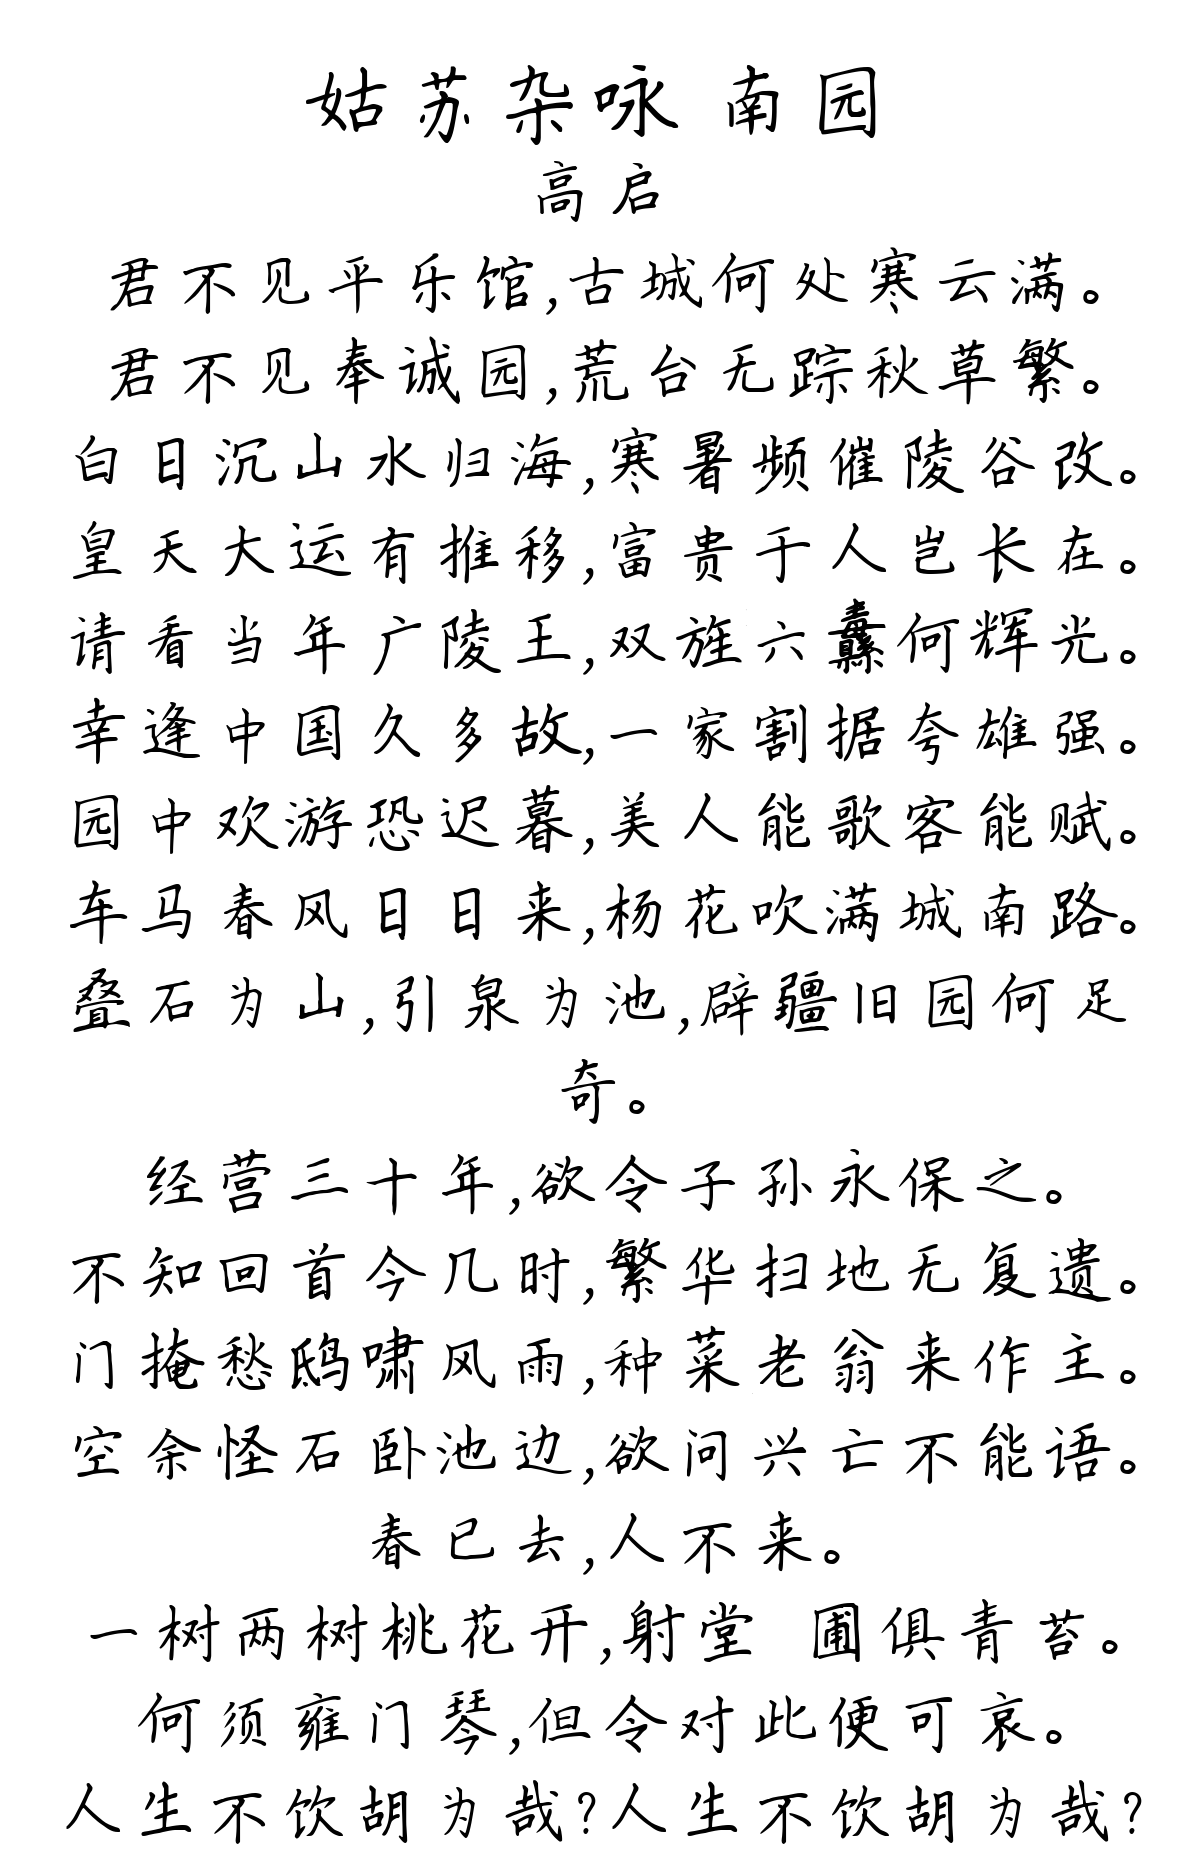 姑苏杂咏 南园
高启
君不见平乐馆,古城何处寒云满。
君不见奉诚园,荒台无踪秋草繁。
白日沉山水归海,寒暑频催陵谷改。
皇天大运有推移,富贵于人岂长在。
请看当年广陵王,双旌六纛何辉光。
幸逢中国久多故,一家割据夸雄强。
园中欢游恐迟暮,美人能歌客能赋。
车马春风日日来,杨花吹满城南路。
叠石为山,引泉为池,辟疆旧园何足
奇。
经营三十年,欲令子孙永保之。
不知回首今几时,繁华扫地无复遗。
门掩愁鸱啸风雨,种菜老翁来作主。
空余怪石卧池边,欲问兴亡不能语。
春已去,人不来。
一树两树桃花开,射堂 圃俱青苔。
何须雍门琴,但令对此便可哀。
人生不饮胡为哉?人生不饮胡为哉?